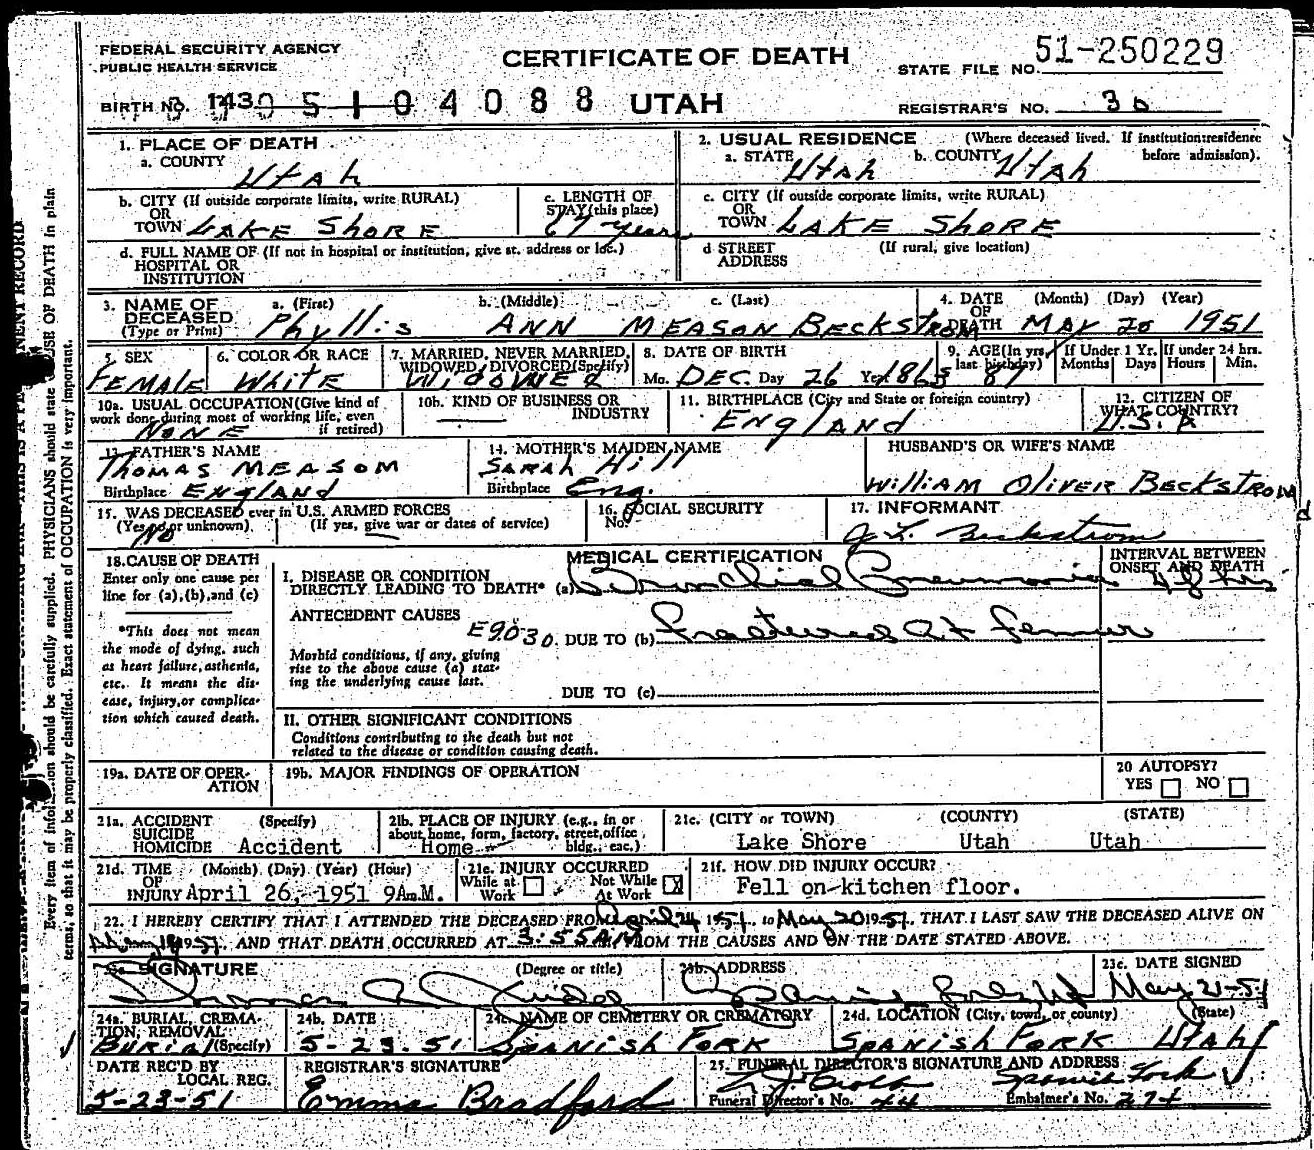 FEDERAL SECURITY AGENCY
PUBLIC HEALTH SERVICE
CERTIFICATE OF DEATH
STATE FILE NO. 51-250229
BIRTH NO. 143 0 5 1 0 4 0 8 8 UTAH
REGISTRAR'S NO. 30
1. PLACE OF DEATH
a. COUNTY
Utah
2. USUAL RESIDENCE (Where deceased lived. If institution:residence before admission).
a. STATE Utah b. COUNTY Utah
b. CITY (If outside corporate limits, write RURAL)
OR
TOWN LAKE ShoRE
c. LENGTH OF
STAY (this place)
67 years
c. CITY (If outside corporate limits, write RURAL)
OR
TOWN LAKE ShoRE
d. FULL NAME OF (If not in hospital or institution, give st. address or loc.)
HOSPITAL OR
INSTITUTION
d STREET (If rural, give location)
ADDRESS
3. NAME OF DECEASED (Type or Print)
a. (First) b. (Middle) c. (Last)
Phyllis ANN MEASOM BECKSTROM
4. DATE OF DEATH (Month) (Day) (Year)
MAY 20 1951
5. SEX
FEMALE
6. COLOR OR RACE
White
7. MARRIED, NEVER MARRIED, WIDOWED, DIVORCED (Specify)
WIDOWED
8. DATE OF BIRTH
Mo. DEC. Day 26 Year 1863
9. AGE (In yrs. last birthday)
87
If Under 1 Yr. Months Days
If under 24 hrs. Hours Min.
10a. USUAL OCCUPATION (Give kind of work done during most of working life, even if retired)
NONE
10b. KIND OF BUSINESS OR INDUSTRY
11. BIRTHPLACE (City and State or foreign country)
ENGLAND
12. CITIZEN OF WHAT COUNTRY?
U.S.A
13. FATHER'S NAME
Thomas MEASOM
Birthplace ENGLAND
14. MOTHER'S MAIDEN NAME
SARAH Hill
Birthplace Eng.
HUSBAND'S OR WIFE'S NAME
William Oliver BECKSTROM
15. WAS DECEASED ever in U.S. ARMED FORCES
(Yes, no or unknown). (If yes, give war or dates of service)
No
16. SOCIAL SECURITY
No.
17. INFORMANT
J. L. Beckstrom
18. CAUSE OF DEATH
Enter only one cause per line for (a), (b), and (c)
*This does not mean the mode of dying, such as heart failure, asthenia, etc. It means the disease, injury, or complication which caused death.
MEDICAL CERTIFICATION
INTERVAL BETWEEN ONSET AND DEATH
I. DISEASE OR CONDITION
DIRECTLY LEADING TO DEATH* (a) Bronchial Pneumonia 48 hrs
ANTECEDENT CAUSES
E9030. DUE TO (b) Fractured Rt Femur
Morbid conditions, if any, giving rise to the above cause (a) stating the underlying cause last.
DUE TO (c)
II. OTHER SIGNIFICANT CONDITIONS
Conditions contributing to the death but not related to the disease or condition causing death.
19a. DATE OF OPERATION
19b. MAJOR FINDINGS OF OPERATION
20 AUTOPSY?
YES NO
21a. ACCIDENT (Specify)
SUICIDE
HOMICIDE Accident
21b. PLACE OF INJURY (e.g., in or about home, form, factory, street, office bldg., eac.)
Home
21c. (CITY or TOWN) (COUNTY) (STATE)
Lake Shore Utah Utah
21d. TIME (Month) (Day) (Year) (Hour)
OF
INJURY April 26, 1951 9A.M.
21e. INJURY OCCURRED
While at Work Not While At Work X
21f. HOW DID INJURY OCCUR?
Fell on kitchen floor.
22. I HEREBY CERTIFY THAT I ATTENDED THE DECEASED FROM April 24 1951, to May 20 1951, THAT I LAST SAW THE DECEASED ALIVE ON
May 1951, AND THAT DEATH OCCURRED AT 3:55 AM FROM THE CAUSES AND ON THE DATE STATED ABOVE.
SIGNATURE (Degree or title)
Thomas
23b. ADDRESS
Spanish Fork Ut
23c. DATE SIGNED
May 21-51
24a. BURIAL, CREMATION, REMOVAL (Specify)
Burial
24b. DATE
5-23-51
24c. NAME OF CEMETERY OR CREMATORY
SPANISH FORK
24d. LOCATION (City, town, or county) (State)
SPANISH FORK UTAH
DATE REC'D BY LOCAL REG.
5-23-51
REGISTRAR'S SIGNATURE
Emma Bradford
25. FUNERAL DIRECTOR'S SIGNATURE AND ADDRESS
Spanish Fork
Funeral Director's No. 44 Embalmer's No. 274
Every item of information should be carefully supplied. PHYSICIANS should state CAUSE OF DEATH in plain
terms, so that it may be properly classified. Exact statement of OCCUPATION is very important.